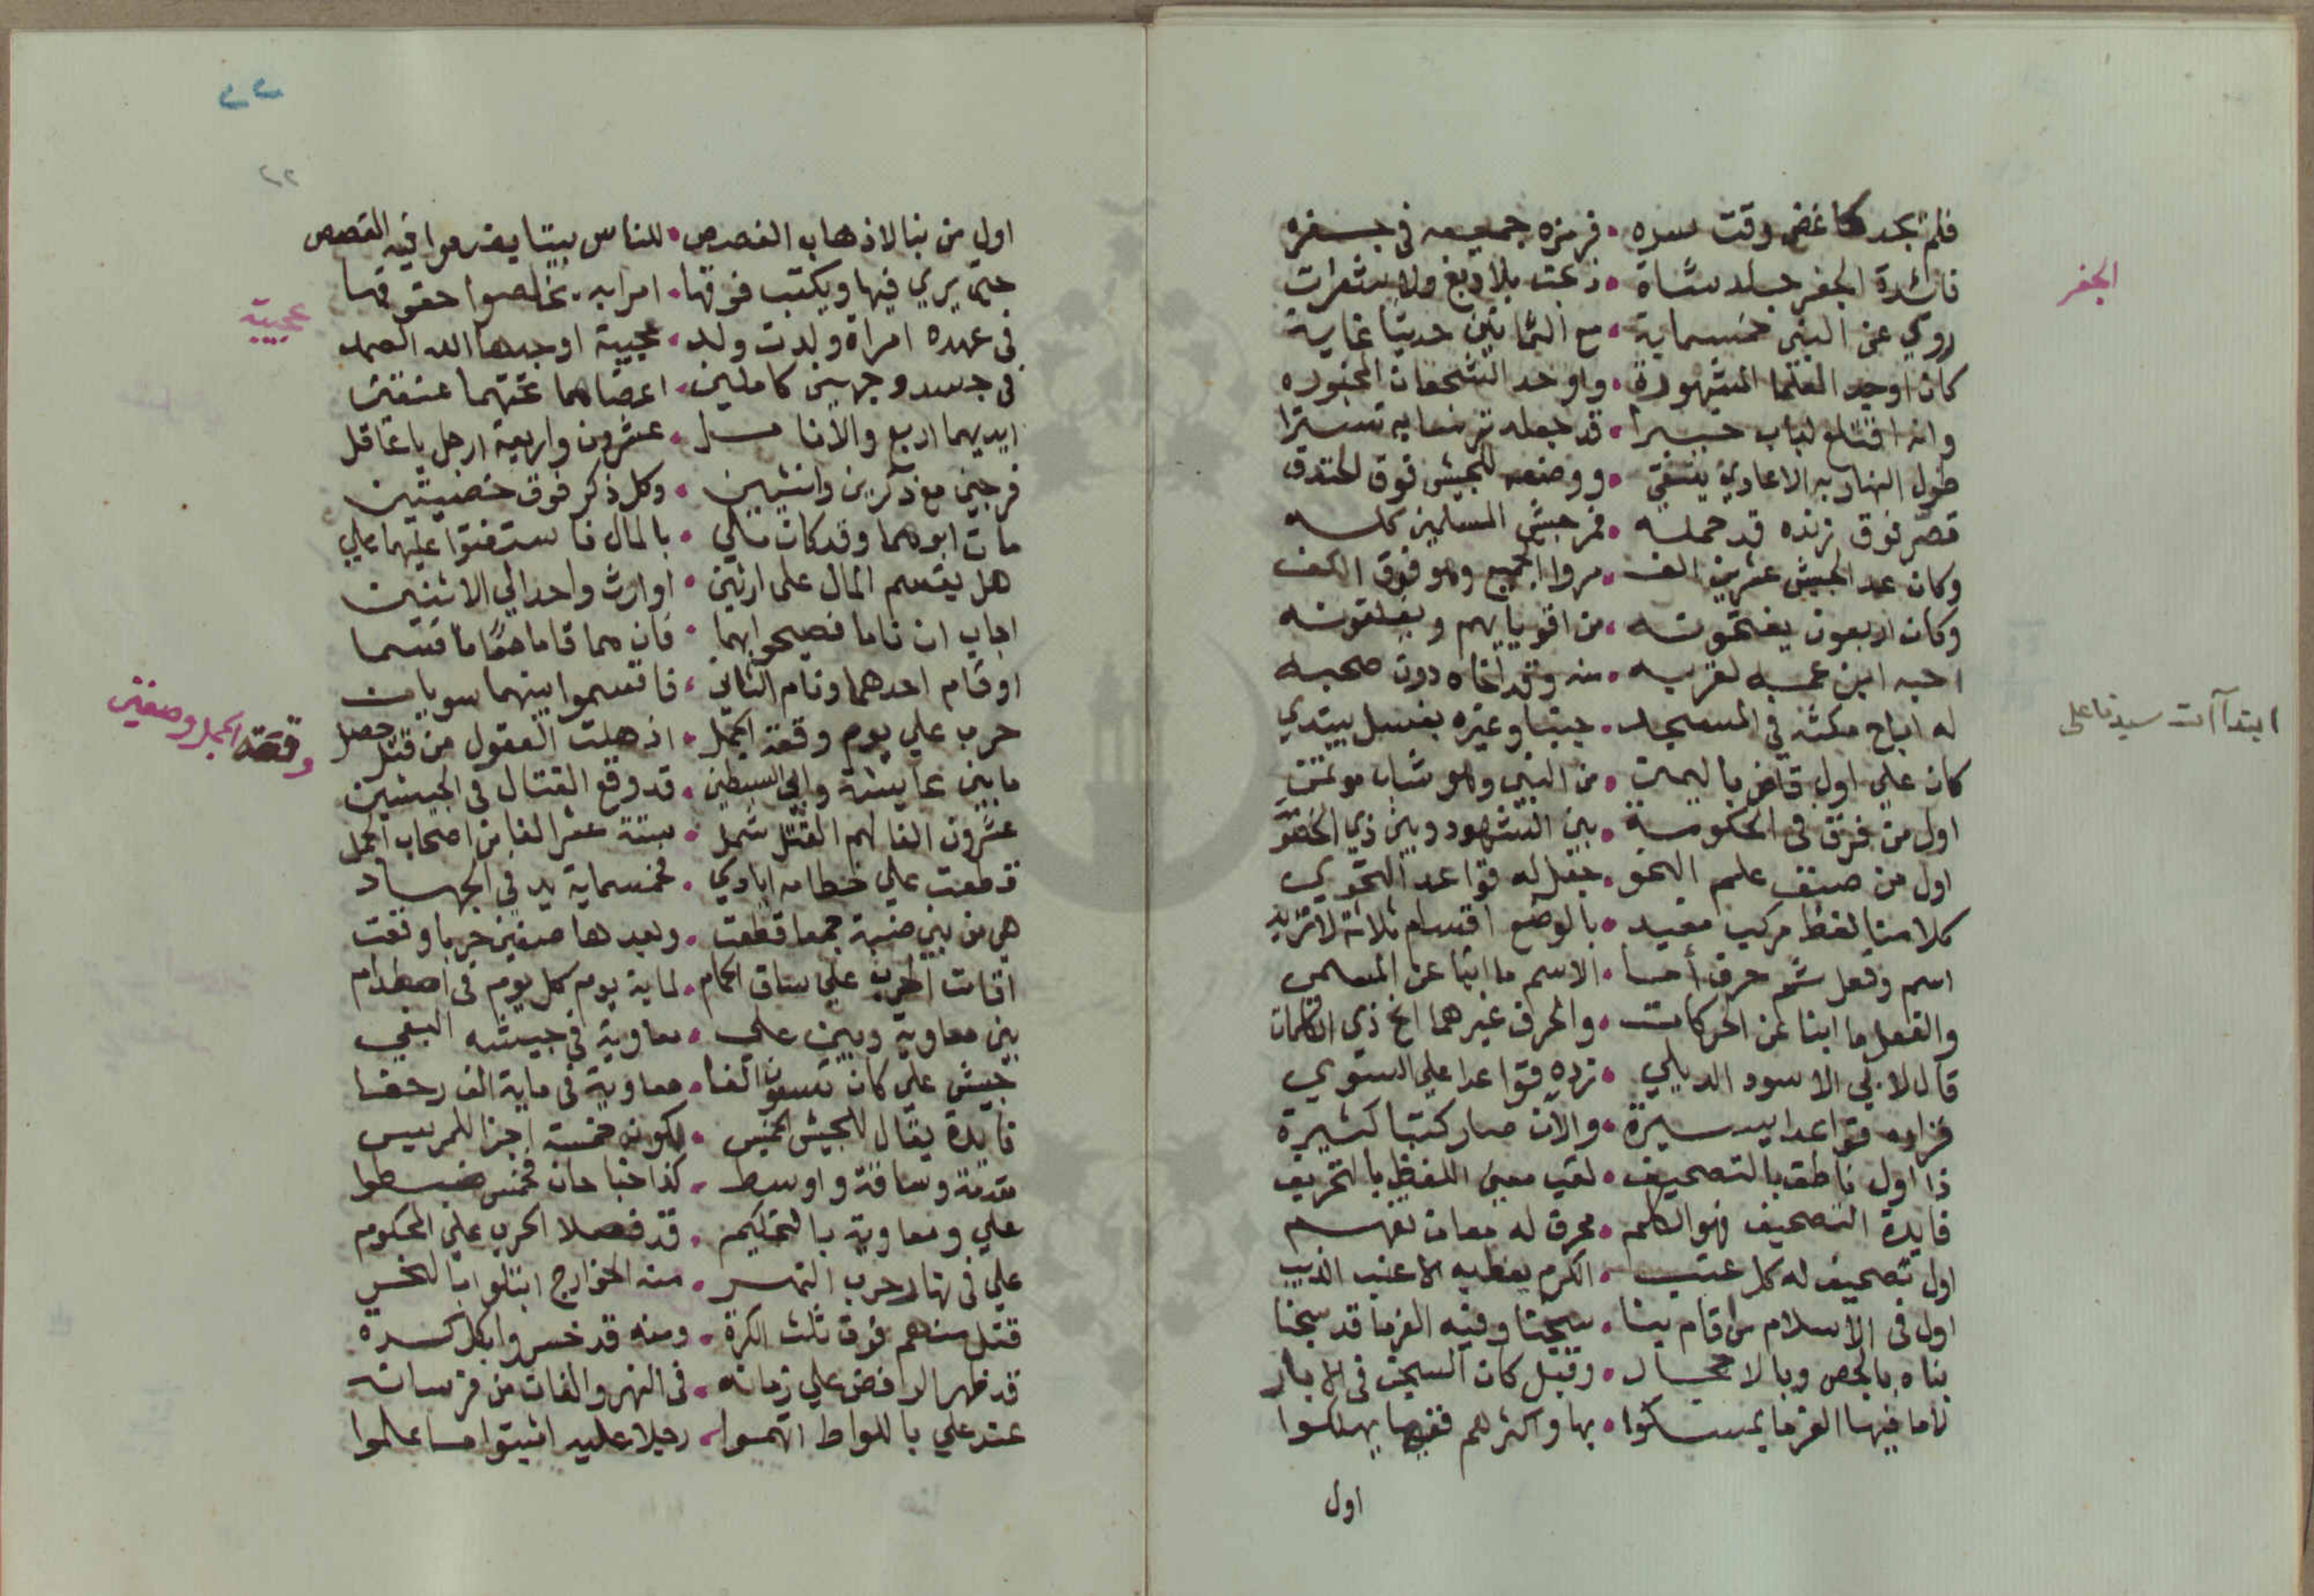 فلم يجد كاغض وقت سره • فرمزه جميعه في جفره
فائدة الجفر جلد شاة • دبغت بلا دبغ ولا شعرات
الجفر
روي عن النبي خمسماية • مع الثمانين حديثا غاية
كان اوحد العلما المشهورة • واوحد الشجعان المخبوره
وانه اقتلع لباب خيبرا • قد جعله ترسا به تسترا
طول النهار به الاعادي يتقي • ووضعه للجيش فوق الخندق
قصر فوق زنده قد حمله • فمر جيش المسلمين كله
وكان عد الجيش عشرين الف • مروا الجميع وهو فوق الكف
وكان اربعون يفتحونه • من اقويايهم ويغلقونه
احبه ابن عمه لقربه • منه وقد اخاه دون صحبه
له اباح مكثه في المسجد • جنبا وغيره بغسل يبتدي
ابتدآآت سيدنا على
كان علي اول قاض باليمن • من النبي وهو شاب موتمن
اول من فرق في الحكومة • بين الشهود وبين ذي الخصومة
اول من صنف علم النحو • جعل له قواعد النحوي
كلامنا لفظ مركب مفيد • بالوضع اقسام ثلاثة لا تزيد
اسم وفعل ثم حرف أسا • الاسم ما انبا عن المسمى
والفعل ما انبا عن الحركات • والحرف غيرهما الخ ذي الكلمات
قال لابي الاسود الديلي • زده قواعدا علي السوي
فزاده قواعدا يسيرة • والان صار كتبا كثيرة
ذا اول ناطق بالتصحيف • لقب معين اللفظ بالتحريف
فايدة التصحيف فهو الكلم • محرف له معان تفهم
اول تصحيف له كل عنب • الكرم يعطيه الا عنب الديب
اول في الاسلام من اقام بنا • سجنا وفيه الغرما قد سجنا
بناه بالجص وبالاحجار • وقبل كان السجن في الابار
ناما فيها الغرما يمسكوا • بها واكثرهم فيها يهلكوا
اول
٢٢
٢٢
اول من بنا لاذهاب الغصص • للناس بيتا يضعوا فيه القصص
حتى يري فيها ويكتب فوقها • امرا به يخلصوا حقوقها
في عهده امراة ولدت ولد • عجيبة اوجدها الله الصمد
عجيبة
في جسد وجهين كاملين • اعضاهما تحتهما عنقين
ايديهما اربع والانامل • عشرون واربعة ارجل يا عاقل
فرجين مع ذكرين وانثيين • وكل ذكر فوق خصيتين
مات ابوهما وقد كان ملي • بالمال فاستفتوا عليهما علي
هل يقسم المال على ارثين • او ارث واحد الي الاثنين
اجاب ان ناما فصيحوا بهما • فان هما قاما معا ما قسما
او قام احدهما ونام الثاني • فاقسموا بينهما سويات
حرب علي يوم وقعة الجمل • اذهلت العقول من قتل حصل
وقعة الجمل وصفين
ما بين عايشة وابي السبطين • قد وقع القتال في الجيشين
عشرون الفا لهم القتل شمل • ستة عشر الفا من اصحاب الجمل
قطعت علي خطامه ايادي • خمسماية يد في الجهاد
هي من بني ضبة جمعا قطعت • وبعدها صفين حربا وقعت
اقامت الحرب علي ساق الحمام • لماية يوم كل يوم في اصطدام
بين معاوية وبين علي • معاوية في جيشه البغي
جيش علي كان تسعون الفا • معاوية في ماية الف زحفا
فايدة يقال للجيش الخميس • لكونه خمسة اجزا للرييس
مقدمة وساقة واوسط • كذا جناحان فخمس ضبطوا
علي ومعاوية بالتحكيم • قد فصلا الحرب علي المحكوم
علي في نهار حرب النهر • منه الخوارج ابتلوا بالخسر
قتل منهم فوق ثلث الكرة • ومنه قد خسروا بكل كسرة
قد ظهر الرافض علي زمانه • في النهروالفات من فرسانه
عند علي باللواط اتهموا • رجلا عليه اثبتوا ما علموا